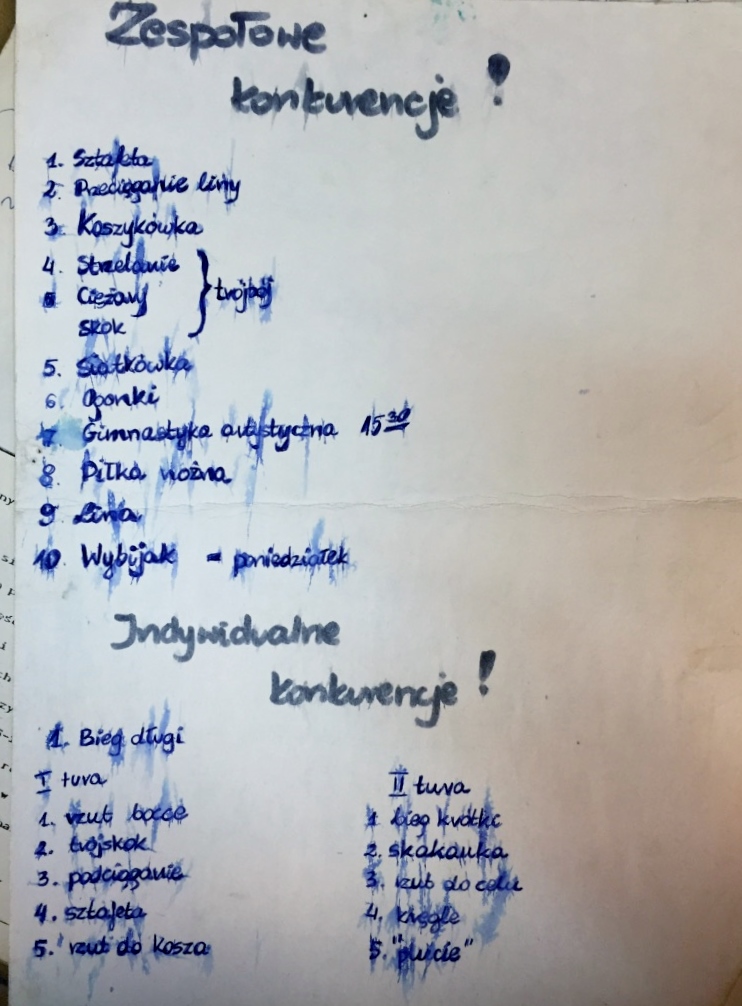 Zespołowe
konkurencje!
1. Sztafeta
2. Przeciąganie liny
3. Koszykówka
4. Strzelanie
Ciężary
skok
} trójbój
5. Siatkówka
6. Ogonki
7 Gimnastyka artystyczna 15 30
8. Piłka nożna
9 Lina
10. Wybijak = poniedziałek
Indywidualne
konkurencje!
1. Bieg długi
I tura
1. rzut bocce
2. trójskok
3. podciąganie
4. sztafeta
5. rzut do kosza
II tura
1 bieg krótki
2. skakanka
3. rzut do celu
4. kręgle
5. "plucie"